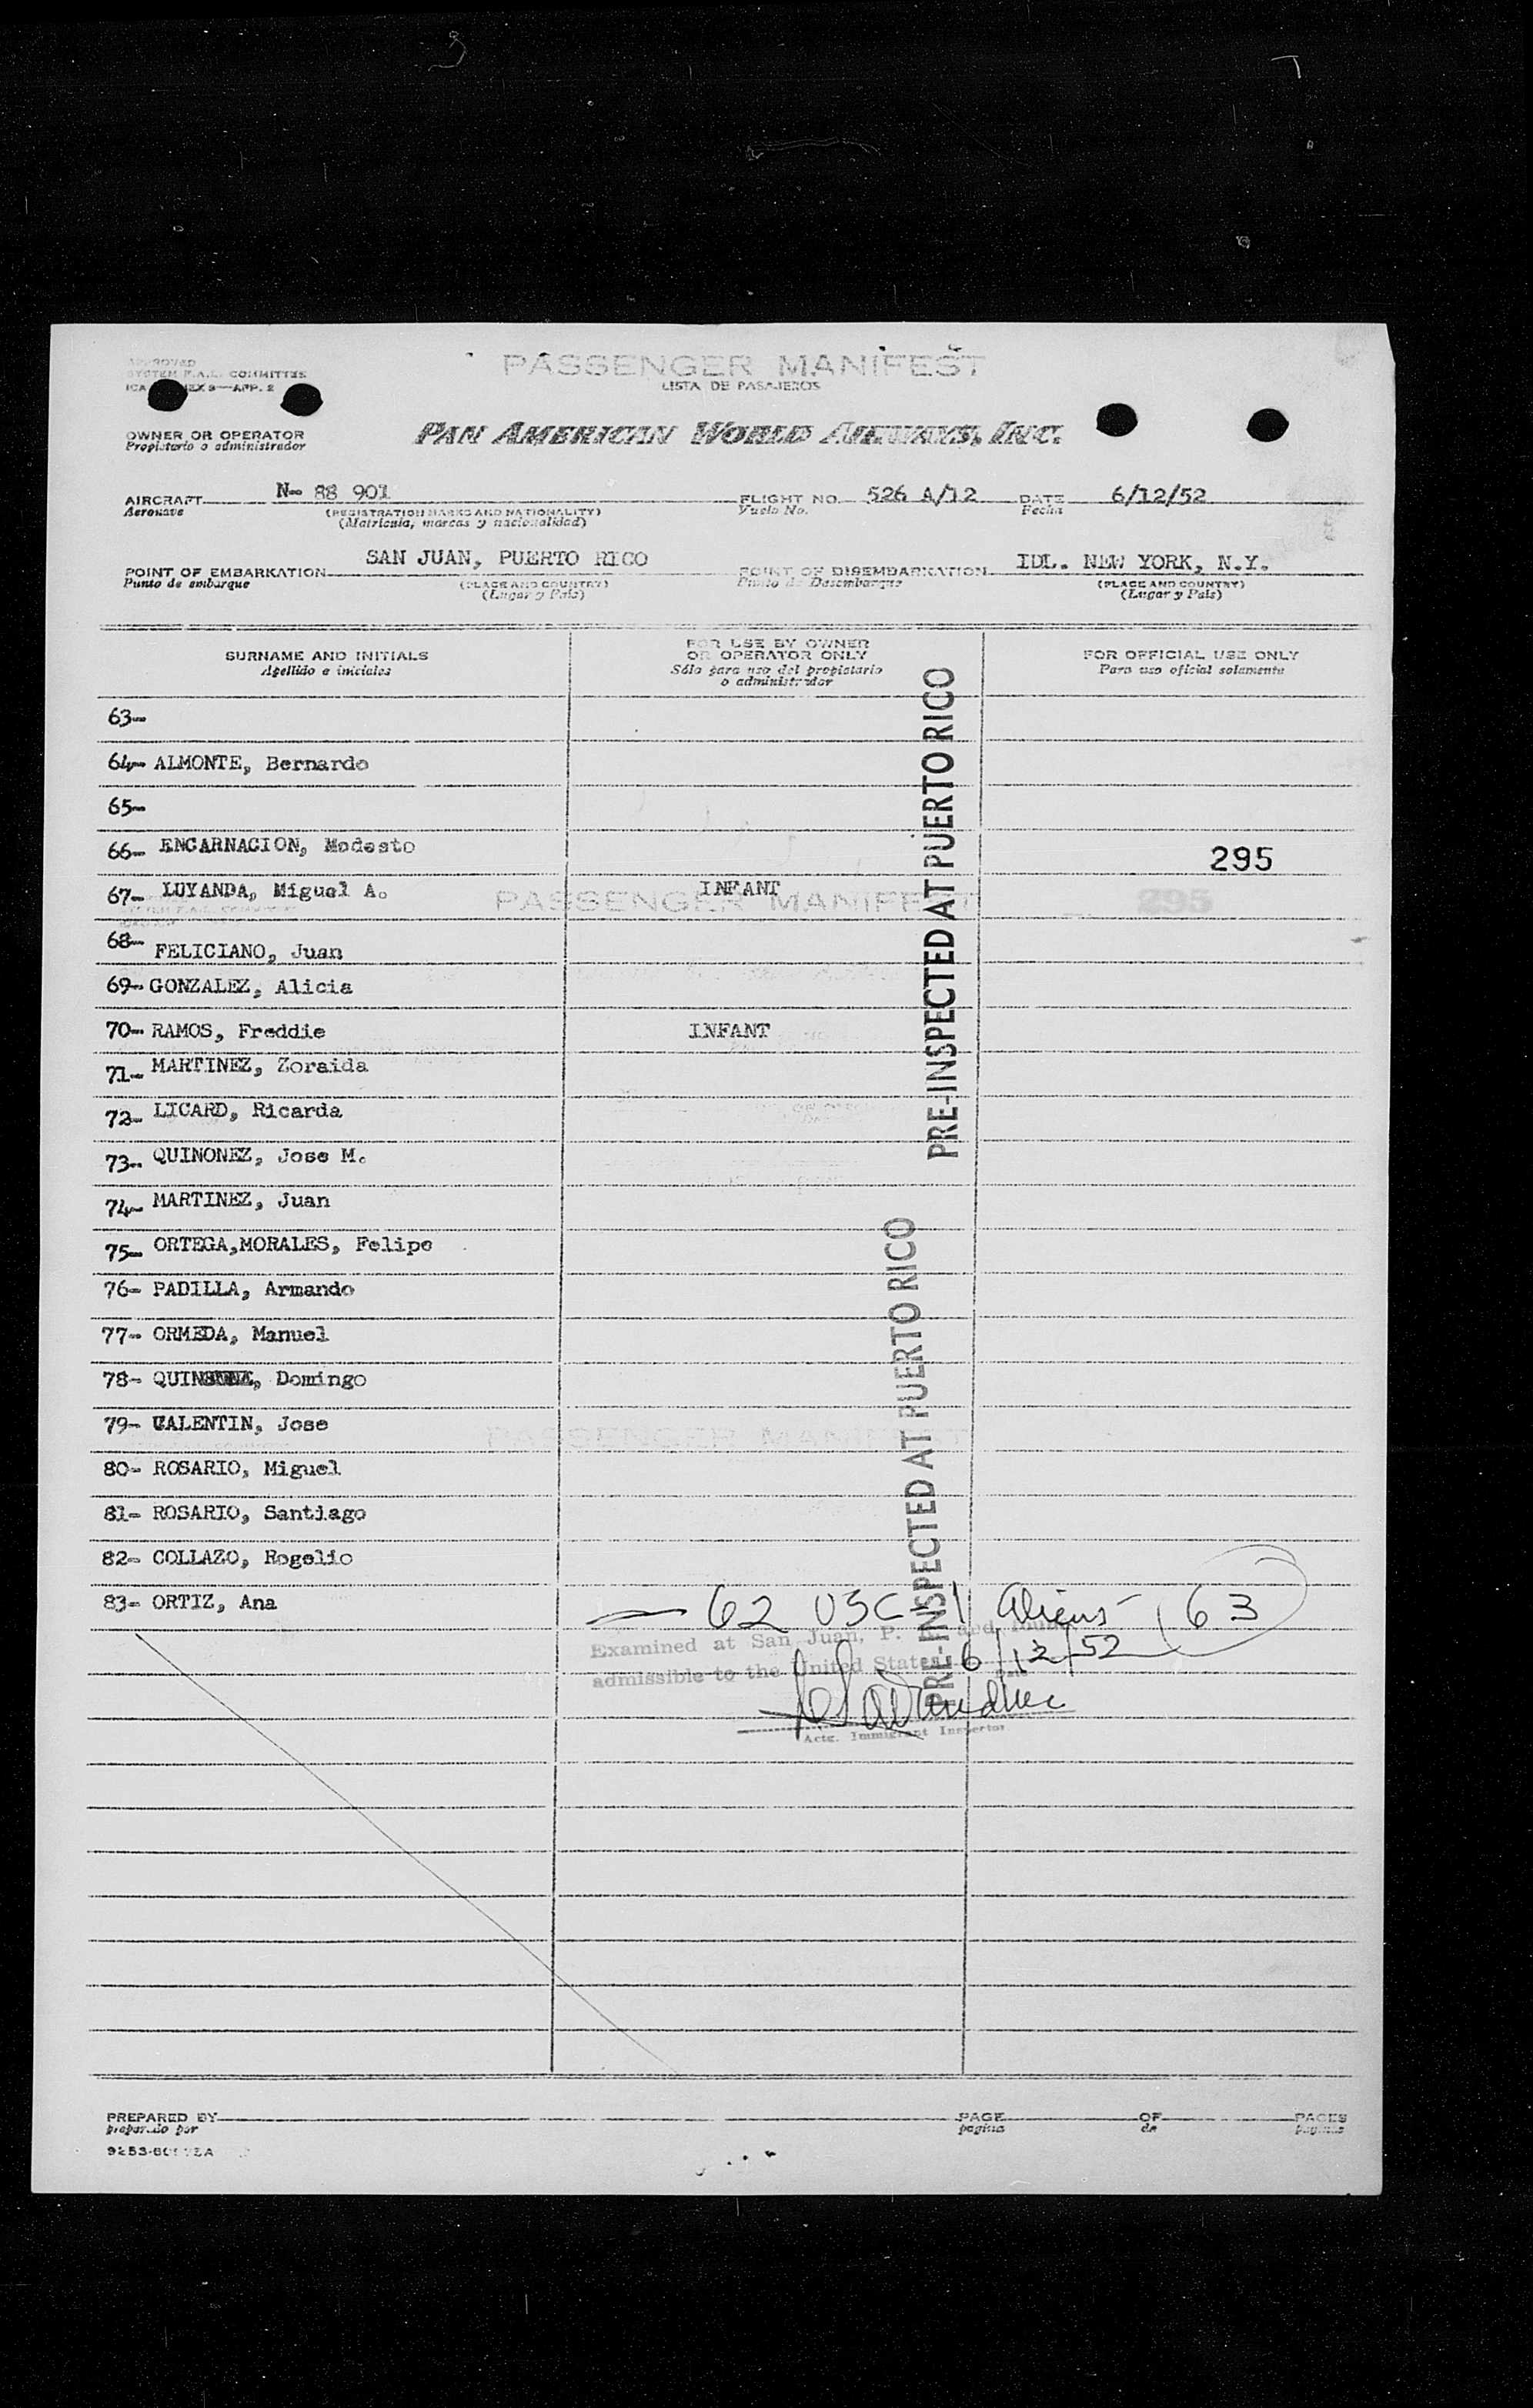 PASSENGER MANIFEST
LISTA DE PASAJEROS
APPROVED
SYSTEM F.A.L. COMMITTEE
9—APP. 2
OWNER OR OPERATOR
Propietario o administrador
PAN AMERICAN WORLD AIRWAYS, INC.
AIRCRAFT N- 88 901 FLIGHT NO. 526 A/12 DATE 6/12/52
Aeronave (REGISTRATION MARKS AND NATIONALITY) Vuelo No. Fecha
(Matrícula, marcas y nacionalidad)
POINT OF EMBARKATION SAN JUAN, PUERTO RICO POINT OF DISEMBARKATION IDL. NEW YORK, N.Y.
Punto de embarque (PLACE AND COUNTRY) Punto de Desembarque (PLACE AND COUNTRY)
(Lugar y País) (Lugar y País)
SURNAME AND INITIALS FOR USE BY OWNER OR OPERATOR ONLY FOR OFFICIAL USE ONLY
Apellido e iniciales Sólo para uso del propietario o administrador Para uso oficial solamente
63-
64- ALMONTE, Bernardo
65-
66- ENCARNACION, Modesto 295
67- LUYANDA, Miguel A. INFANT
PASSENGER MANIFEST 295
68- FELICIANO, Juan
69- GONZALEZ, Alicia
70- RAMOS, Freddie INFANT
71- MARTINEZ, Zoraida
72- LICARD, Ricarda
73- QUINONEZ, Jose M.
74- MARTINEZ, Juan
75- ORTEGA,MORALES, Felipe
76- PADILLA, Armando
77- ORMEDA, Manuel
78- Domingo
79- VALENTIN, Jose
PASSENGER MANIFEST
80- ROSARIO, Miguel
81- ROSARIO, Santiago
82- COLLAZO, Rogelio
83- ORTIZ, Ana
PRE-INSPECTED AT PUERTO RICO
PRE-INSPECTED AT PUERTO RICO
— 62 USC 1 Aliens - 63
Examined at San Juan, P. R. and found
admissible to the United States. 6/12/52
Date
Actg. Immigrant Inspector
PREPARED BY PAGE OF PAGES
preparado por página de páginas